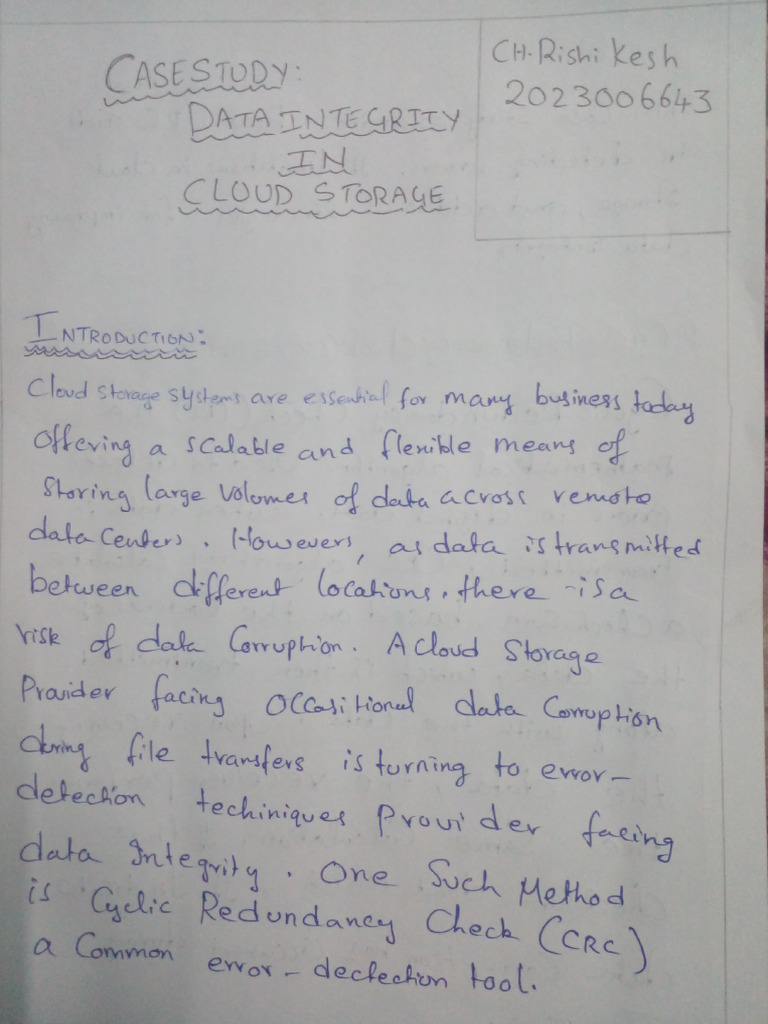 CASESTUDY:
DATA INTEGRITY
IN
CLOUD STORAGE
CH. Rishi Kesh
2023006643
INTRODUCTION:
Cloud storage systems are essential for many business today
offering a scalable and flexible means of
storing large volumes of data across remote
data centers. Howevers, as data is transmitted
between different locations. there is a
risk of data Corruption. A Cloud Storage
Pravider facing Occasitional data Corruption
during file transfers is turning to error-
detection techiniques Provider facing
data Integrity. One Such Method
is Cyclic Redundancy Check (CRC)
a Common error-dectection tool.